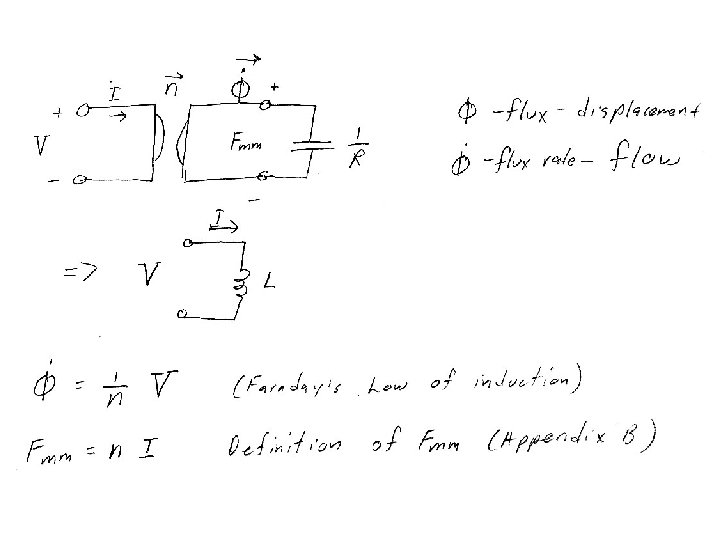 I n⃗ Φ̇ +
+ V - Fmm 1/R
-
Φ - flux - displacement
Φ̇ - flux rate - flow
I
=> V L
Φ̇ = 1/n V (Faraday's Law of induction)
Fmm = n I Definition of Fmm (Appendix B)